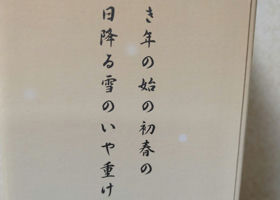 き年の始の初春の
日降る雪のいや重け